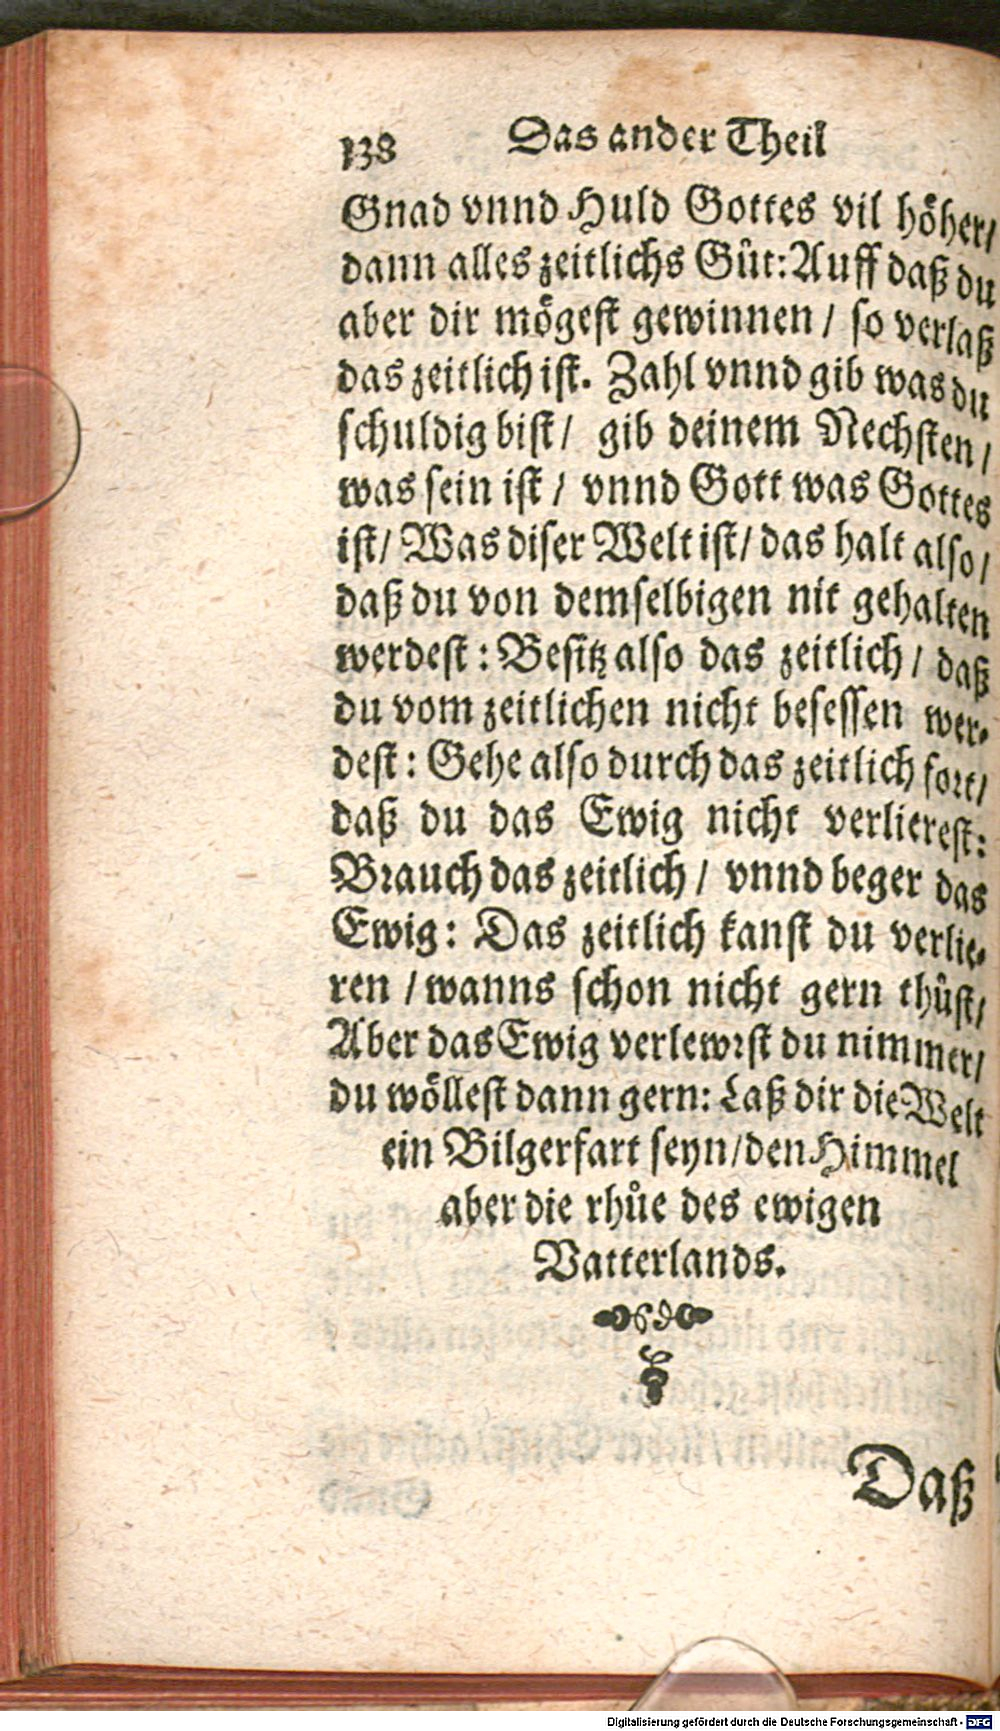 138 Das ander Theil
Gnad vnnd Huld Gottes vil höher/
dann alles zeitlichs Gůt: Auff daß du
aber dir mögest gewinnen / so verlaß
das zeitlich ist. Zahl vnnd gib was du
schuldig bist / gib deinem Nechsten /
was sein ist / vnnd Gott was Gottes
ist / Was diser Welt ist / das halt also /
daß du von demselbigen nit gehalten
werdest : Besitz also das zeitlich / daß
du vom zeitlichen nicht besessen wer-
dest : Gehe also durch das zeitlich fort /
daß du das Ewig nicht verlierest :
Brauch das zeitlich / vnnd beger das
Ewig : Das zeitlich kanst du verlie-
ren / wanns schon nicht gern thůst /
Aber das Ewig verlewrst du nimmer /
du wöllest dann gern: Laß dir die Welt
ein Bilgerfart seyn / den Himmel
aber die rhůe des ewigen
Vatterlands.
Daß
Digitalisierung gefördert durch die Deutsche Forschungsgemeinschaft - DFG